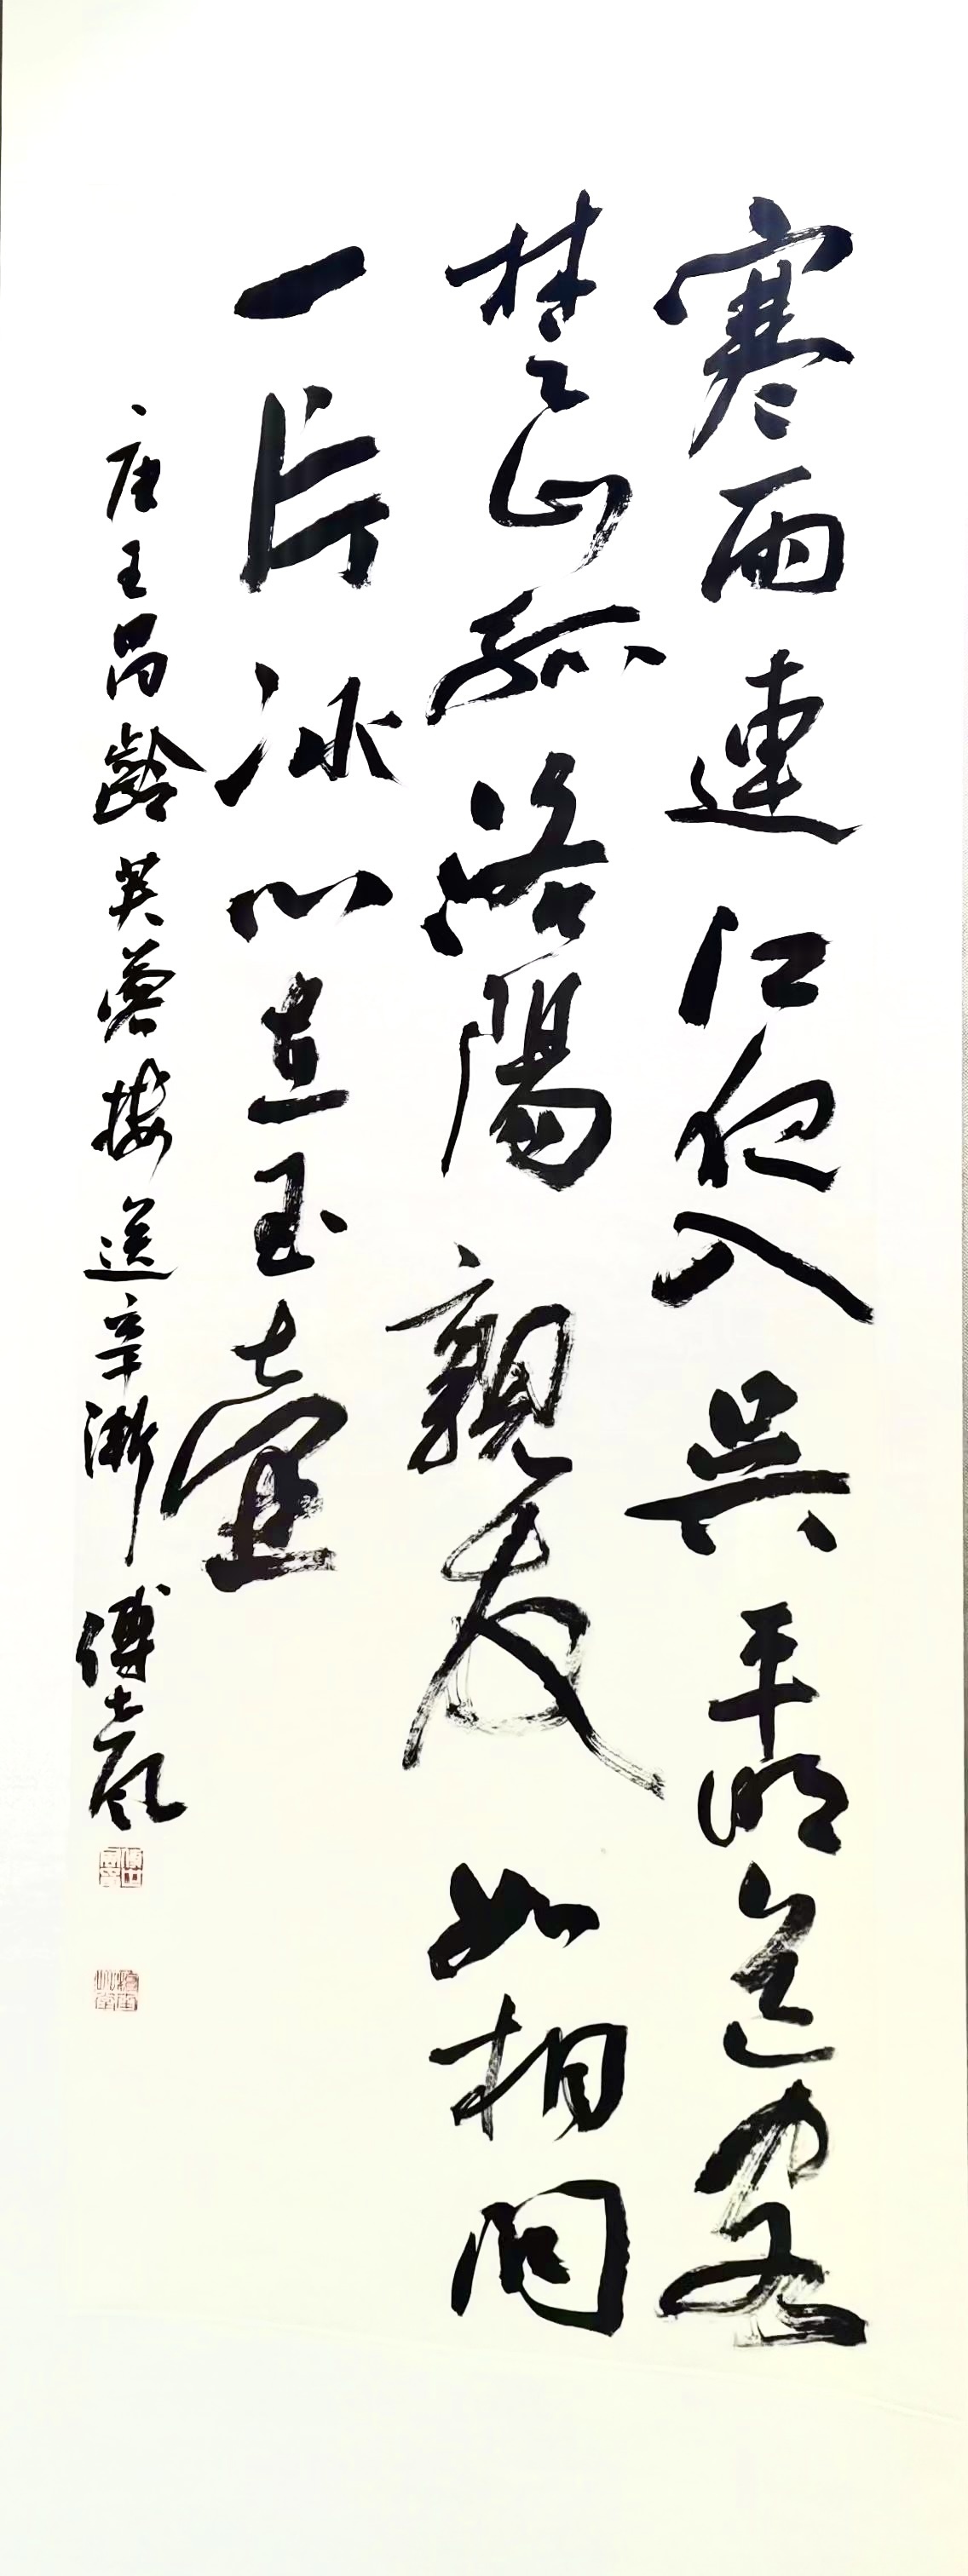 寒雨連江夜入吳平明送客
楚山孤洛陽親友如相問
一片冰心在玉壺
唐王昌齡芙蓉楼送辛渐 傅士嵐